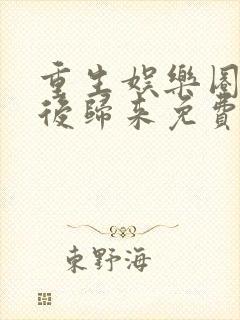 重生娛樂圈
後歸來免費
東野海